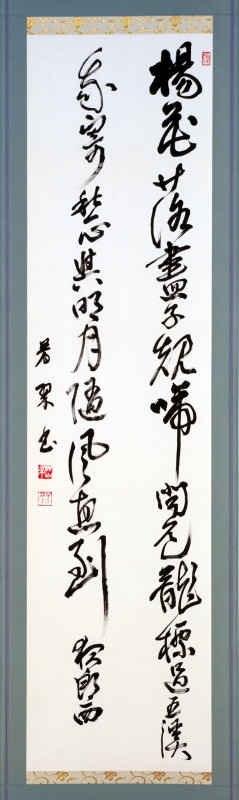 楊花落盡子規啼聞道龍標過五溪
我寄愁心與明月隨風直到夜郎西
書